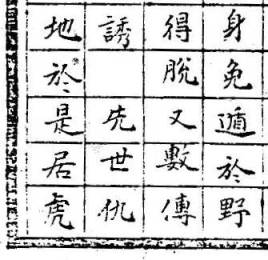 身免遁於野
得脫又數傳
誘 先世仇
地於是居虎